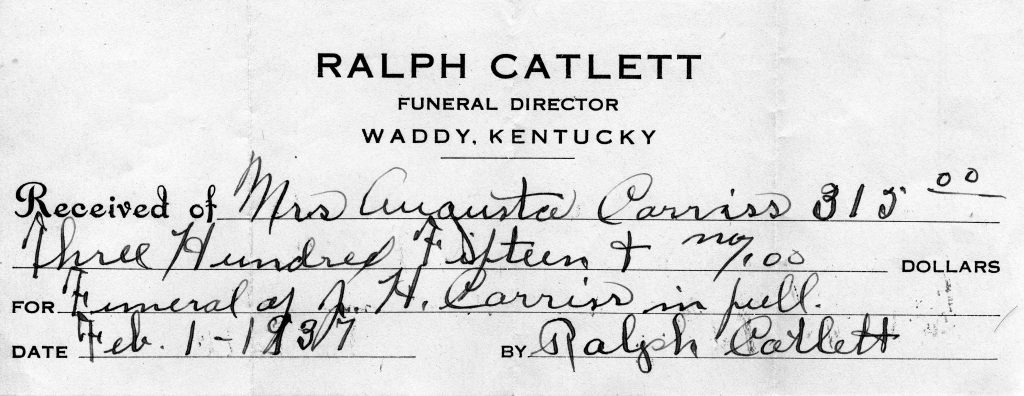 RALPH CATLETT
FUNERAL DIRECTOR
WADDY, KENTUCKY
Received of Mrs Augusta Carriss 315 00
Three Hundred Fifteen + no/100 DOLLARS
FOR Funeral of J. H. Carriss in full.
DATE Feb. 1 - 1937 BY Ralph Catlett